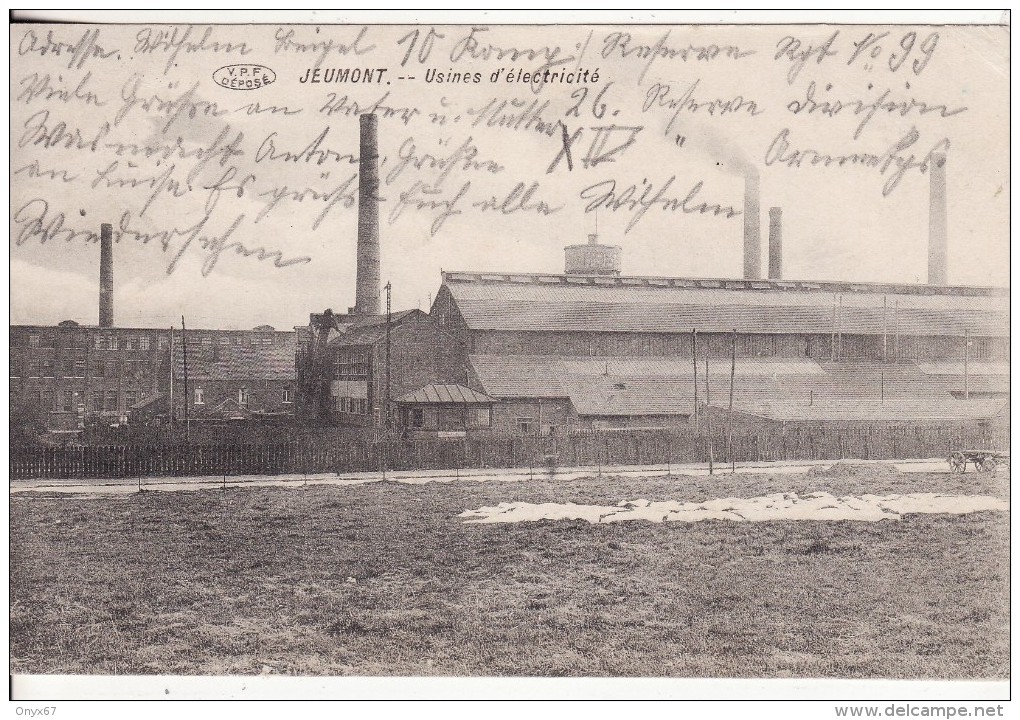 Adresse. Wilhelm Beigel 10 Komp / Reserve Rgt No 99
V.P.F. DÉPOSÉ
JEUMONT. -- Usines d'électricité
Viele Grüße an Vater u. Mutter 26. Reserve Division
Was macht Anton, Grüße XIV " Armeekps
an Luise Es grüßt Euch alle Wilhelm
Wiedersehen
Onyx67
www.delcampe.net